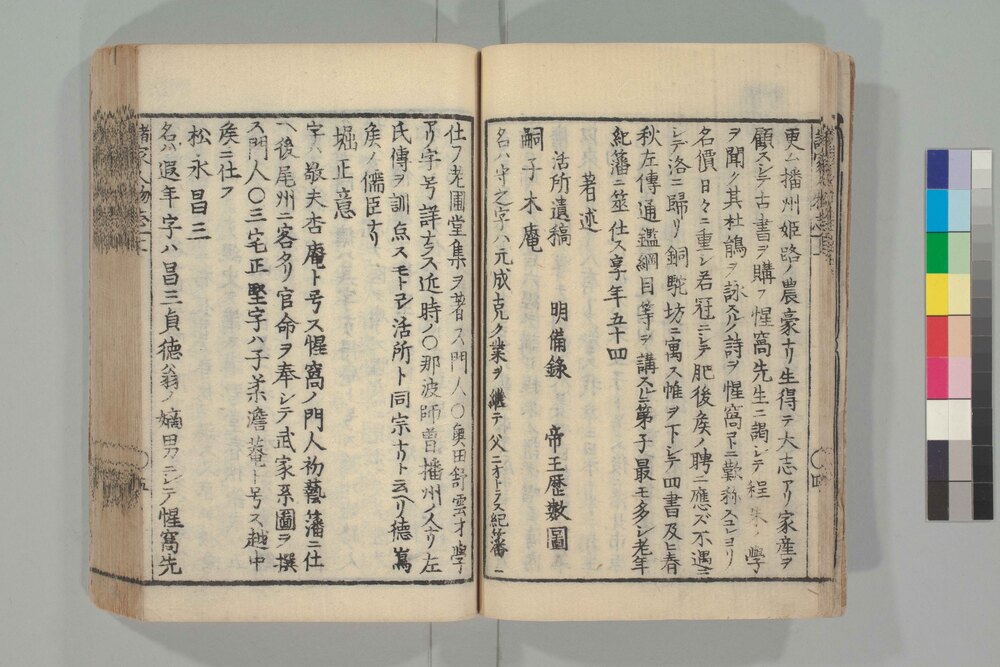 更ム播州姫路ノ農豪ナリ生得テ大志アリ家産ヲ
顧スシテ古書ヲ購フ惺窩先生ニ謁シテ程朱ノ學
ヲ聞ク其杜鵑ヲ詠スルノ詩ヲ惺窩ヿトニ歎称スコレヨリ
名價日々ニ重シ若冠ニシテ肥後矦ノ聘ニ應ズ不遇ニ
シテ洛ニ歸リ銅駝坊ニ寓ス帷ヲ下シテ四書及ヒ春
秋左傳通鑑綱目等ヲ講スルニ第子最モ多シ老年
紀藩ニ筮仕ス享年五十四
著述
活所遺稿　明備錄　帝王歴數圖
嗣子木庵
名ハ守之字ハ元成克ク業ヲ継テ父ニオトラス紀藩ニ
仕フ老圃堂集ヲ著ス門人〇奥田舒雲才學
アリ字号詳ナラス近時ノ〇那波師曽播州ノ人ナリ左
氏傳ヲ訓点スモトヨリ活所ト同宗ナリト云ヘリ德嶌
矦ノ儒臣ナリ
堀正意
字ハ敬夫杏庵ト号ス惺窩ノ門人初藝藩ニ仕
ヘ後尾州ニ客タリ官命ヲ奉シテ武家系圖ヲ撰
ス門人〇三宅正堅字ハ子柔澹菴ト号ス越中
矦ニ仕フ
松永昌三
名ハ遐年字ハ昌三貞德翁ノ嫡男ニシテ惺窩先
諸家人物志上
〇五